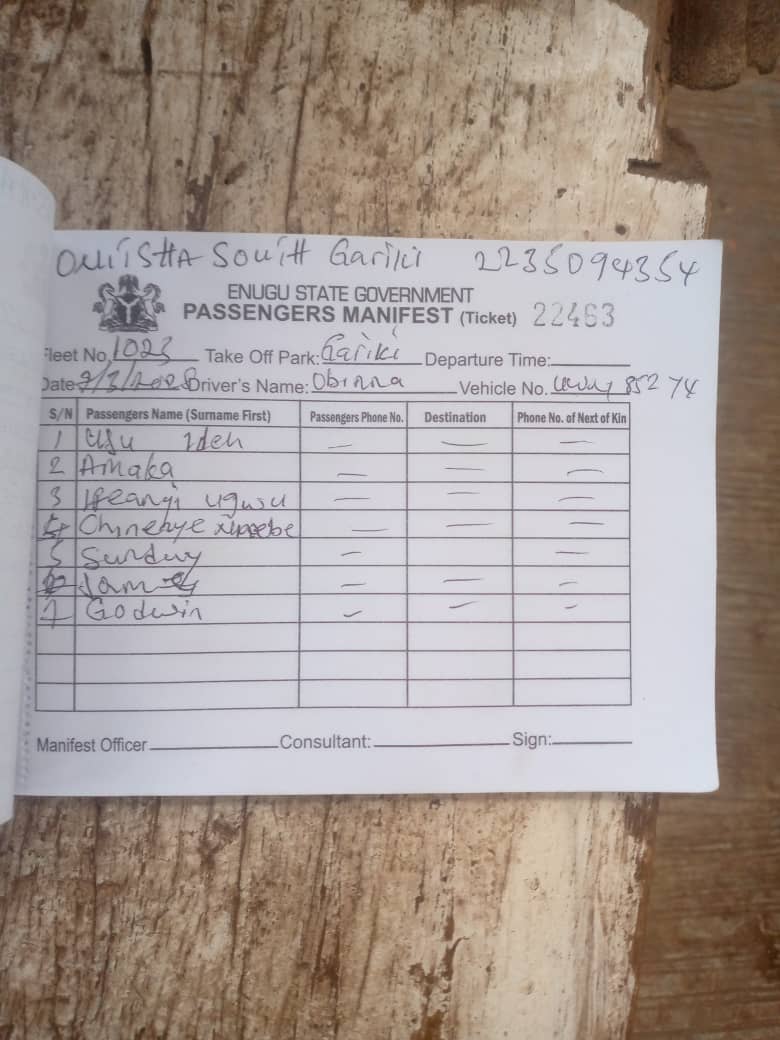 ONITSHA SOUTH Gariki 2235094354
ENUGU STATE GOVERNMENT
PASSENGERS MANIFEST (Ticket) 22463
Fleet No. 1023 Take Off Park: Gariki Departure Time:
Date 9/3/2028 Driver's Name: Obinna Vehicle No. 852 74
S/N Passengers Name (Surname First) Passengers Phone No. Destination Phone No. of Next of Kin
1 — — —
2 Amaka — — —
3 Ifeanyi — — —
4 — — —
5 Sunday — —
James — — —
7 Godwin — — —
Manifest Officer Consultant: Sign: